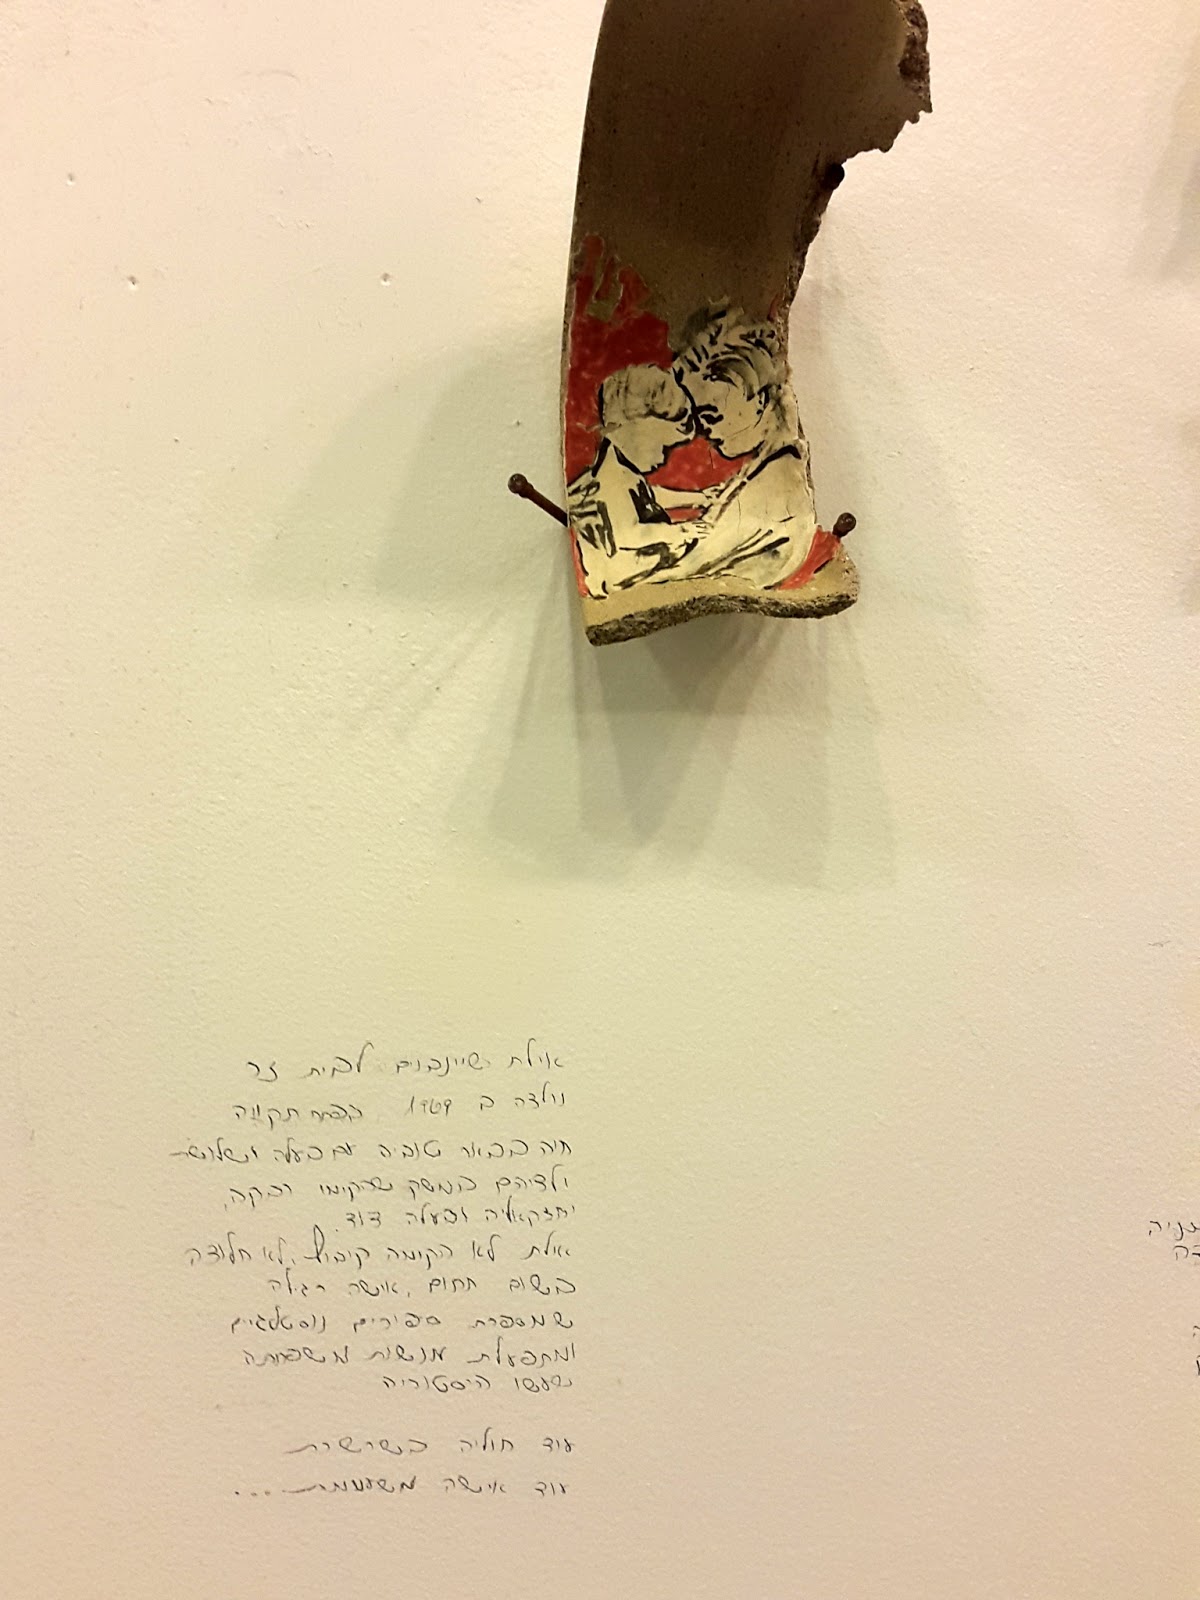 אילת שיינבוים לבית זר
נולדה ב 1979 בפתח תקווה
חיה בבאר טוביה עם בעלה ושלושת
ילדיהם במשק שהקימו רבקה,
יחזקאליה ובעלה דוד.
אילת לא הקימה קיבוץ, לא חלוצה
בשום תחום, אישה רגילה
שמספרת סיפורים נוסטלגיים
ומתפעלת מנשות משפחתה
שעשו היסטוריה
עוד חוליה בשרשרת
עוד אישה משעממת...